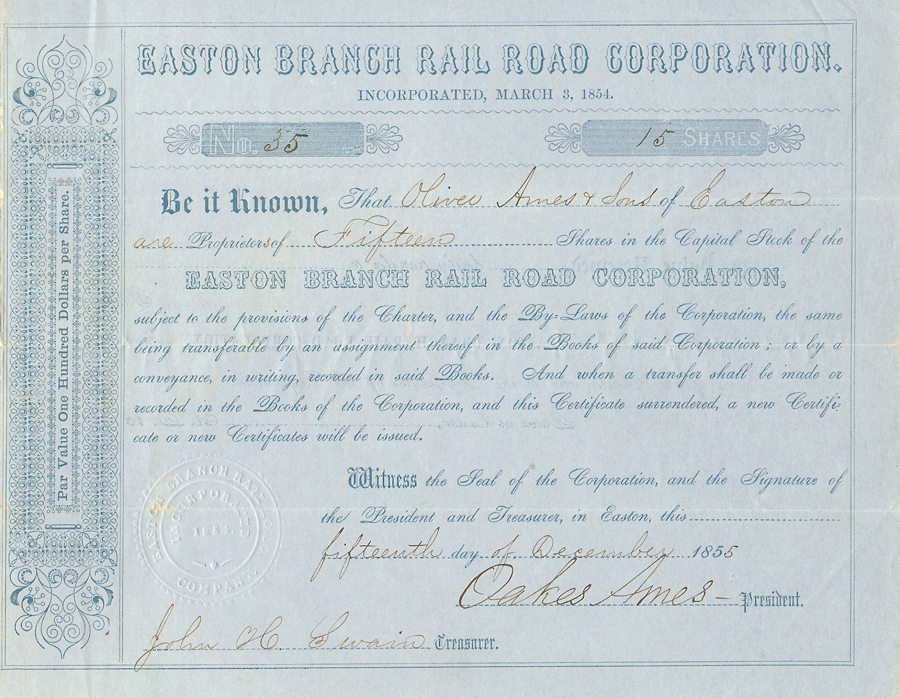 EASTON BRANCH RAIL ROAD CORPORATION.
INCORPORATED, MARCH 3, 1854.
No. 35
15 SHARES
Par Value One Hundred Dollars per Share.
Be it Known, That Oliver Ames & Sons of Easton
are Proprietors of Fifteen Shares in the Capital Stock of the
EASTON BRANCH RAIL ROAD CORPORATION,
subject to the provisions of the Charter, and the By-Laws of the Corporation, the same
being transferable by an assignment thereof in the Books of said Corporation; or by a
conveyance, in writing, recorded in said Books. And when a transfer shall be made or
recorded in the Books of the Corporation, and this Certificate surrendered, a new Certifi-
cate or new Certificates will be issued.
Witness the Seal of the Corporation, and the Signature of
the President and Treasurer, in Easton, this
fifteenth day of December 1855
Oakes Ames - President.
John H. Swain Treasurer.
EASTON BRANCH RAIL
COMPANY
INCORPORATED